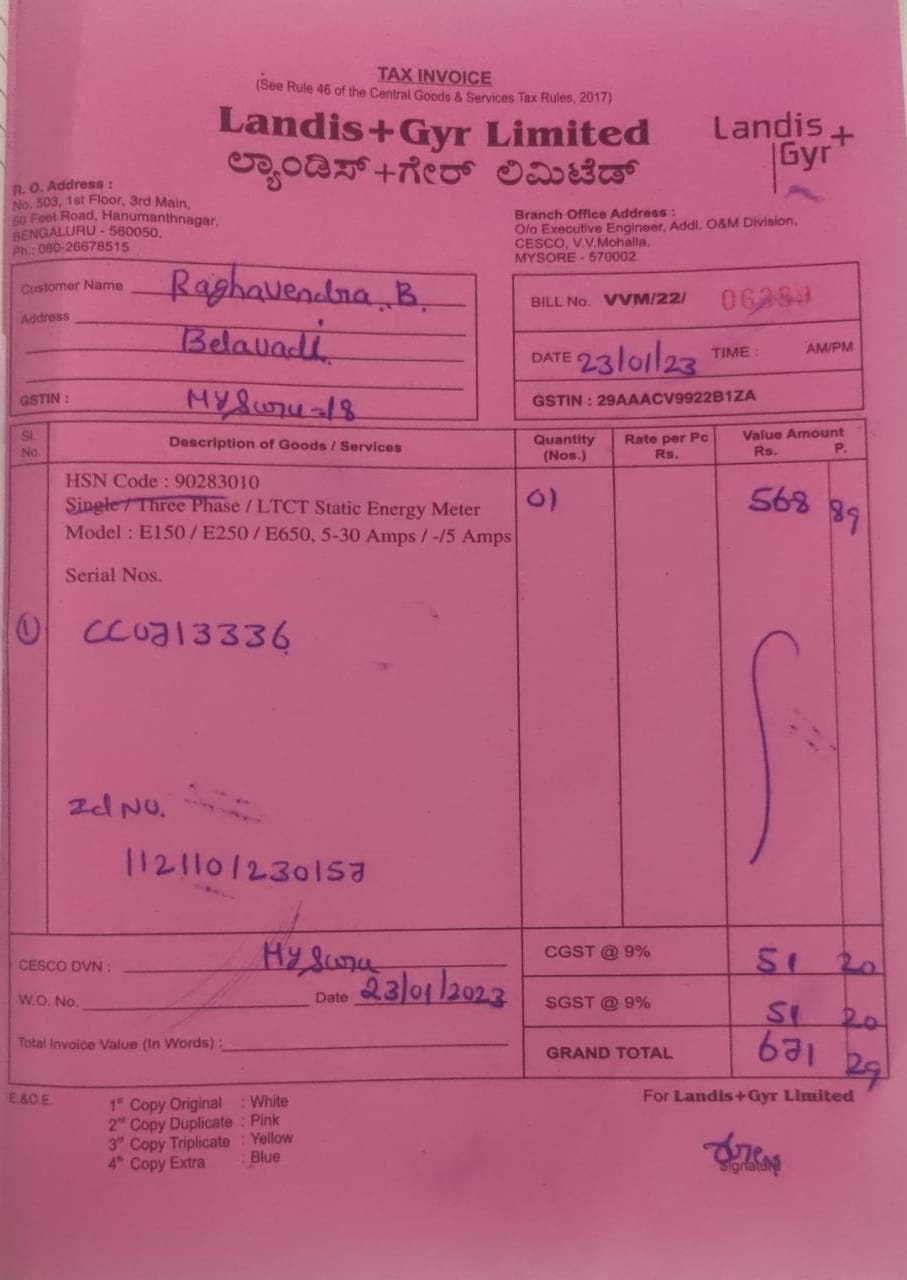 TAX INVOICE
(See Rule 46 of the Central Goods & Services Tax Rules, 2017)
Landis+Gyr Limited
ಲ್ಯಾಂಡಿಸ್+ಗೇರ್ ಲಿಮಿಟೆಡ್
Landis+
Gyr
R. O. Address :
No. 503, 1st Floor, 3rd Main,
50 Feet Road, Hanumanthnagar,
BENGALURU - 560050.
Ph.: 080-26678515
Branch Office Address :
O/o Executive Engineer, Addl. O&M Division,
CESCO, V.V.Mohalla,
MYSORE - 570002.
Customer Name Raghavendra. B.
Address
Belavadi.
GSTIN : Mysuru-18
BILL No. VVM/22/
DATE 23/01/23 TIME : AM/PM
GSTIN : 29AAACV9922B1ZA
Sl. No. Description of Goods / Services Quantity (Nos.) Rate per Pc Rs. Value Amount Rs. P.
HSN Code : 90283010
Single / Three Phase / LTCT Static Energy Meter 01 568 89
Model : E150 / E250 / E650, 5-30 Amps / -/5 Amps
Serial Nos.
① CCU713336
Id No.
1121101230157
CESCO DVN : Mysuru
W.O. No. Date 23/01/2023
Total Invoice Value (In Words) :
CGST @ 9% 51 20
SGST @ 9% 51 20
GRAND TOTAL 671 29
E.&O E.
1st Copy Original : White
2nd Copy Duplicate : Pink
3rd Copy Triplicate : Yellow
4th Copy Extra : Blue
For Landis+Gyr Limited
Signature